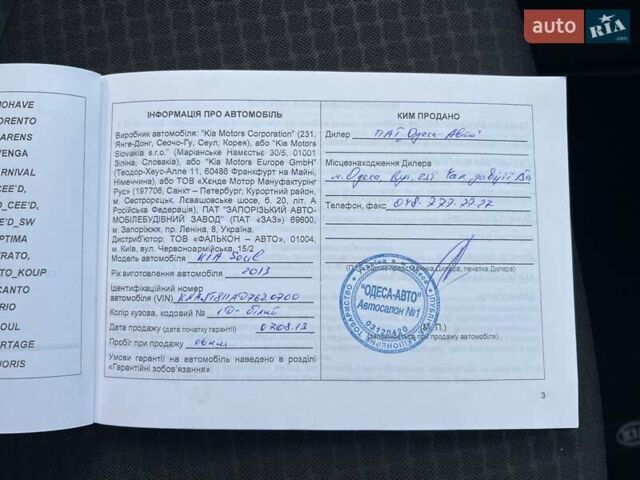 auto RIA .com
MOHAVE
SORENTO
CARENS
VENGA
CARNIVAL
CEE'D,
_CEE'D,
E'D_SW
OPTIMA
RATO,
TO_KOUP
ICANTO
RIO
SOUL
PORTAGE
QUORIS
ІНФОРМАЦІЯ ПРО АВТОМОБІЛЬ
Виробник автомобіля: "Kia Motors Corporation" (231,
Янге-Донг, Сеочо-Гу, Сеул, Корея), або "Kia Motors
Slovakia s.r.o." (Маріанське Намєстьє 30/5, 01001
Зіліна, Словакія), або "Kia Motors Europe GmbH"
(Теодор-Хеус-Алле 11, 60486 Франкфурт на Майні,
Німеччина), або ТОВ «Хенде Мотор Мануфактурінг
Рус» (197706, Санкт – Петербург, Курортний район,
м. Сестрорецьк, Лєвашовське шосе, б. 20, літ. А
Російська Федерація), ПАТ "ЗАПОРІЗЬКИЙ АВТО-
МОБІЛЕБУДІВНИЙ ЗАВОД" (ПАТ «ЗАЗ») 69600,
м. Запоріжжя, пр. Леніна, 8, Україна.
Дистриб'ютор: ТОВ «ФАЛЬКОН – АВТО», 01004,
м. Київ, вул. Червоноармійська, 15/2
Модель автомобіля KIA Soul
Рік виготовлення автомобіля 2013
Ідентифікаційний номер
автомобіля (VIN)
Колір кузова, кодовий № 1D- білий
Дата продажу (дата початку гарантії) 07.08.13
Пробіг при продажу 06 км
Умови гарантії на автомобіль наведено в розділі
«Гарантійні зобов'язання».
КИМ ПРОДАНО
Дилер ПАТ „Одеса-Авто"
Місцезнаходження Дилера
м. Одеса, вул.
Телефон, факс 048-777-77-27
(Підпис представника Дилера, печатка Дилера)
Україна м. Одеса
"ОДЕСА-АВТО"
Автосалон №1
03120420
ТОВАРИСТВО
(М. П.)
(заповнюється при продажу автомобіля)
3
KIA